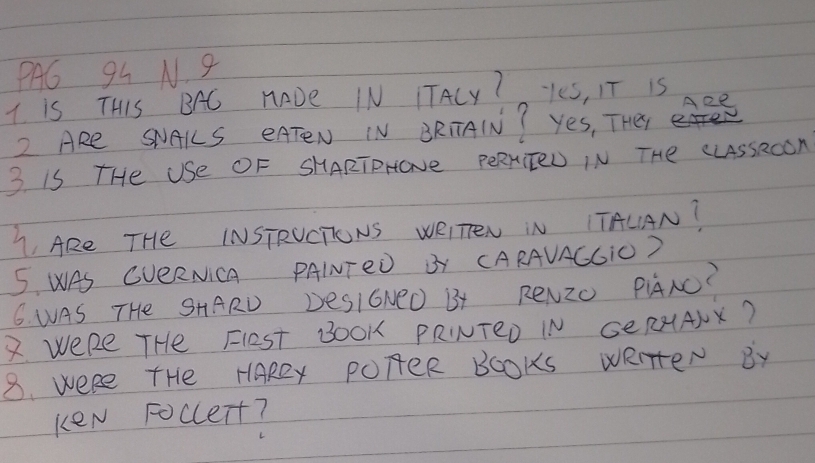 PAG 94 N. 9
1 IS THIS BAG MADE IN ITALY? YES, IT IS
2 ARE SNAILS EATEN IN BRITAIN? YES, THEY EATEN ARE
3. IS THE USE OF SMARTPHONE PERMITED IN THE CLASSROOM
4. ARE THE INSTRUCTIONS WRITTEN IN ITALIAN?
5. WAS GUERNICA PAINTED BY CARAVAGGIO?
6. WAS THE SHARD DESIGNED BY RENZO PIANO?
7. WERE THE FIRST BOOK PRINTED IN GERMANY?
8. WERE THE HARRY POTTER BOOKS WRITTEN BY
KEN FOLLETT?